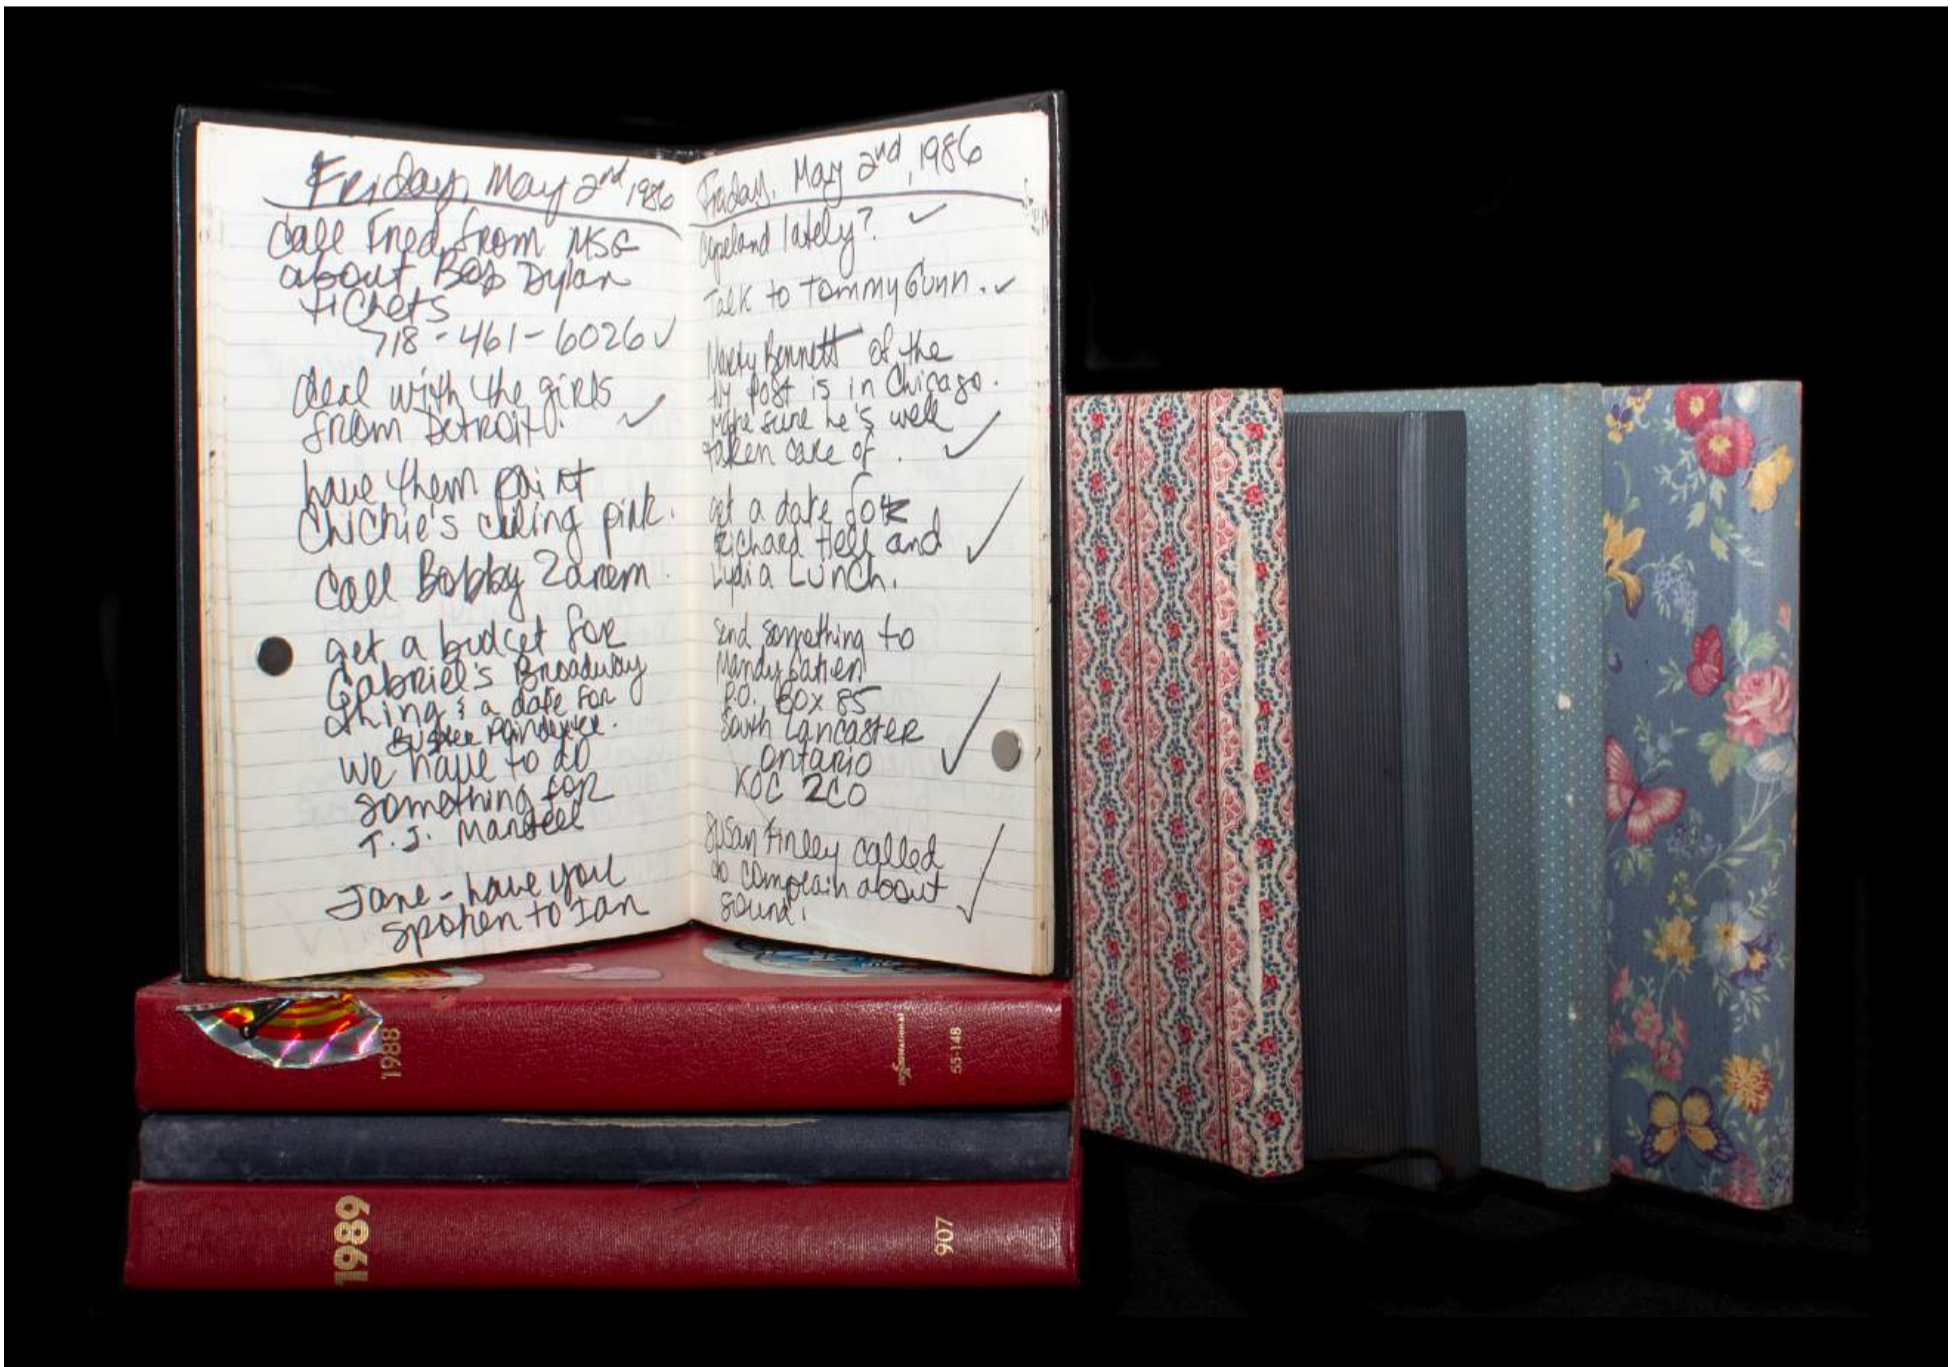 Friday, May 2nd, 1986
Call Fred from MSG
about Bob Dylan
tickets
718-461-6026 ✓
deal with the girls
from Detroit. ✓
have them paint
ChiChie's ceiling pink.
Call Bobby Zarem.
get a budget for
Gabriel's Broadway
thing & a date for
Buster Poindexter.
We have to do
something for
T.J. Martell
Jane - have you
spoken to Ian
Friday, May 2nd, 1986
Copeland lately? ✓
Talk to Tommy Gunn. ✓
Bennett of the
NY Post is in Chicago.
Make sure he's well
taken care of. ✓
get a date for
Richard Hell and
Lydia Lunch. ✓
Send something to
Mandy
P.O. Box 85
South Lancaster
Ontario
KOC 2CO ✓
Susan Finley called
to complain about
sound. ✓
1988
55-148
1989
907